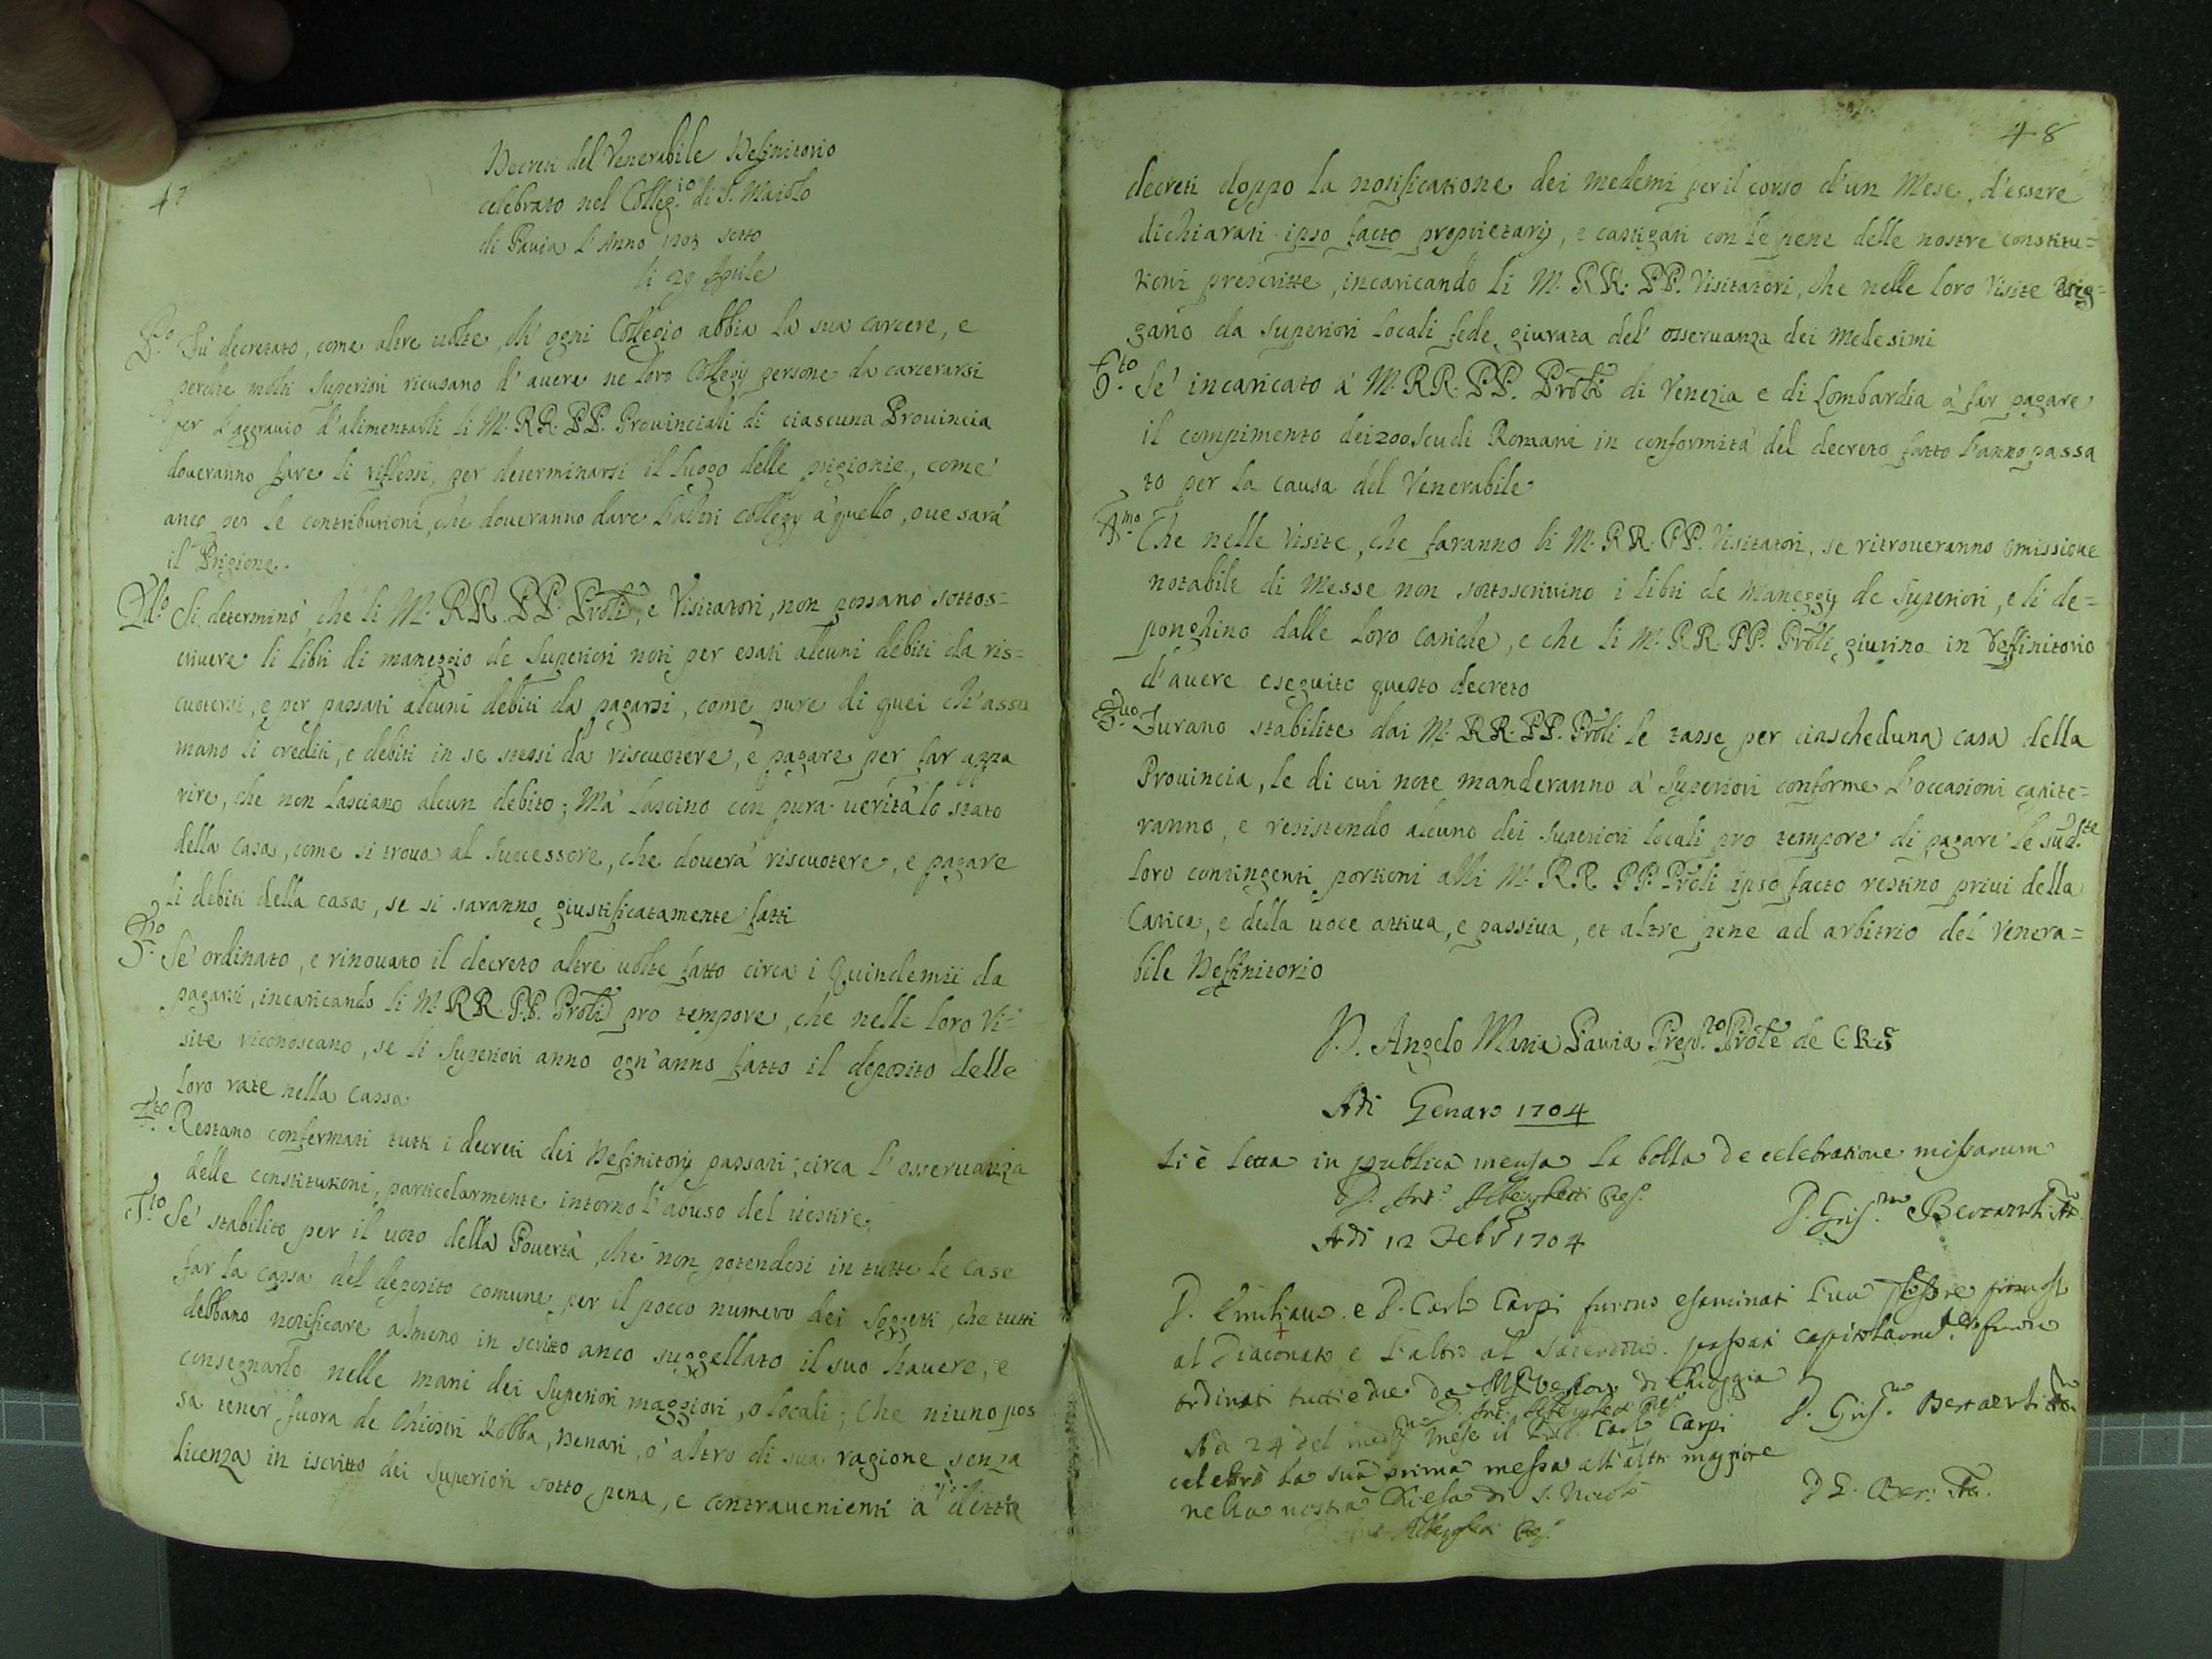 47
Decreti del Venerabile Deffinitorio
celebrato nel Colleg.io di S. Maiolo
di Pavia l'Anno 1703 sotto
li 29 Aprile
P.o Fù decretato, come altre uolte, ch' ogni Collegio abbia la sua carcere, e
perche molti Superiori ricusano d' auere ne loro Collegij persone da carcerarsi
per l'aggrauio d'alimentarli li M. RR. PP. Prouinciali di ciascuna Prouincia
doueranno fare li riflessi, per determinarsi il luogo delle prigionie, come
anco per le contributioni, che doueranno dare l'altri Collegij à quello, oue sarà
il Prigione.
2do Si determinò, che li M. RR. PP. Proli, e Visitatori, non possano sottos=
criuere li libri di maneggio de Superiori noti per esati alcuni debiti da ris=
cuotersi, e per passati alcuni debiti da pagarsi, come pure di quei ch' assu
mano li crediti, e debiti in se stessi da riscuotere, e pagare per far appa
rire, che non lasciano alcun debito; Mà lascino con pura uerità lo stato
della Casa, come si troua al successore, che douerà riscuotere, e pagare
li debiti della casa, se si saranno giustificatamente fatti
3.o Se' ordinato, e rinouato il decreto altre uolte fatto circa i Quindennii da
pagarsi, incaricando li M. RR. PP. Proli pro tempore, che nelle loro Vi=
site riconoscano, se li Superiori anno ogn'anno fatto il deposito delle
loro rate nella Cassa
4.to Restano confermati tutti i decreti dei Definitorij passati; circa l' osseruanza
delle constitutioni, particolarmente intorno l'abuso del uestire.
5.to Se' stabilito per il uoto della Pouertà, che non potendosi in tutte le Case
far la cassa del deposito comune per il pocco numero dei soggetti, che tutti
debbano notificare almeno in scritto anco suggellato il suo hauere, e
consegnarlo nelle mani dei Superiori maggiori, o locali; Che niuno pos
sa tener fuora de Chiostri Robba, Denari, o' altro di sua ragione senza
licenza in iscritto dei Superiori sotto pena, e contrauenienti a' detti
48
decreti doppo la notificatione dei medemi per il corso d'un Mese, d'essere
dichiarati ipso facto proprietarij, e castigati con le pene delle nostre constitu=
tioni prescritte, incaricando li M. RR. PP. Visitatori, che nelle loro Visite esig=
gano da Superiori locali fede giurata del' osseruanza dei Medesimi
6.to Se' incaricato a' M. RR. PP. Proli di Venezia e di Lombardia à far pagare
il compimento dei 200 Scudi Romani in conformità del decreto fatto l'anno passa
to per la causa del Venerabile
7.mo Che nelle Visite, che faranno li M. RR. PP. Visitatori, se ritroueranno omissione
notabile di Messe non sottoscriuino i libri de Maneggij de Superiori, e li de=
ponghino dalle loro cariche, e che li M. RR. PP. Proli giurino in Deffinitorio
d'auere eseguito questo decreto
8.uo Furano stabilite dai M. RR. PP. Proli le tasse per ciascheduna casa della
Prouincia, le di cui note manderanno a' Superiori conforme l'occasioni capite=
ranno, e resistendo alcuno dei Superiori locali pro tempore di pagare le sud.te
loro contingenti portioni alli M. RR. PP. Proli ipso facto restino priui della
Carica, e della uoce attiua, e passiua, et altre pene ad arbitrio del Venera=
bile Deffinitorio
D. Angelo Maria Pauia Prep.to Prole de C.R.S
Adi Genaro 1704
Si è letta in publica mensa la bolla De celebratione missarum
D. Ant.o
Adi 12 Feb.o 1704
D. Emiliano e D. Carlo Carpi furono esaminati l'uno
al Diaconato e l'altro al Sacerdotio.
ordinati tutti e due da di Chioggia
Adi 24 del med.mo Mese il Carlo Carpi
celebrò la sua prima messa all'altar maggiore
nella nostra Chiesa di S. Nicolò